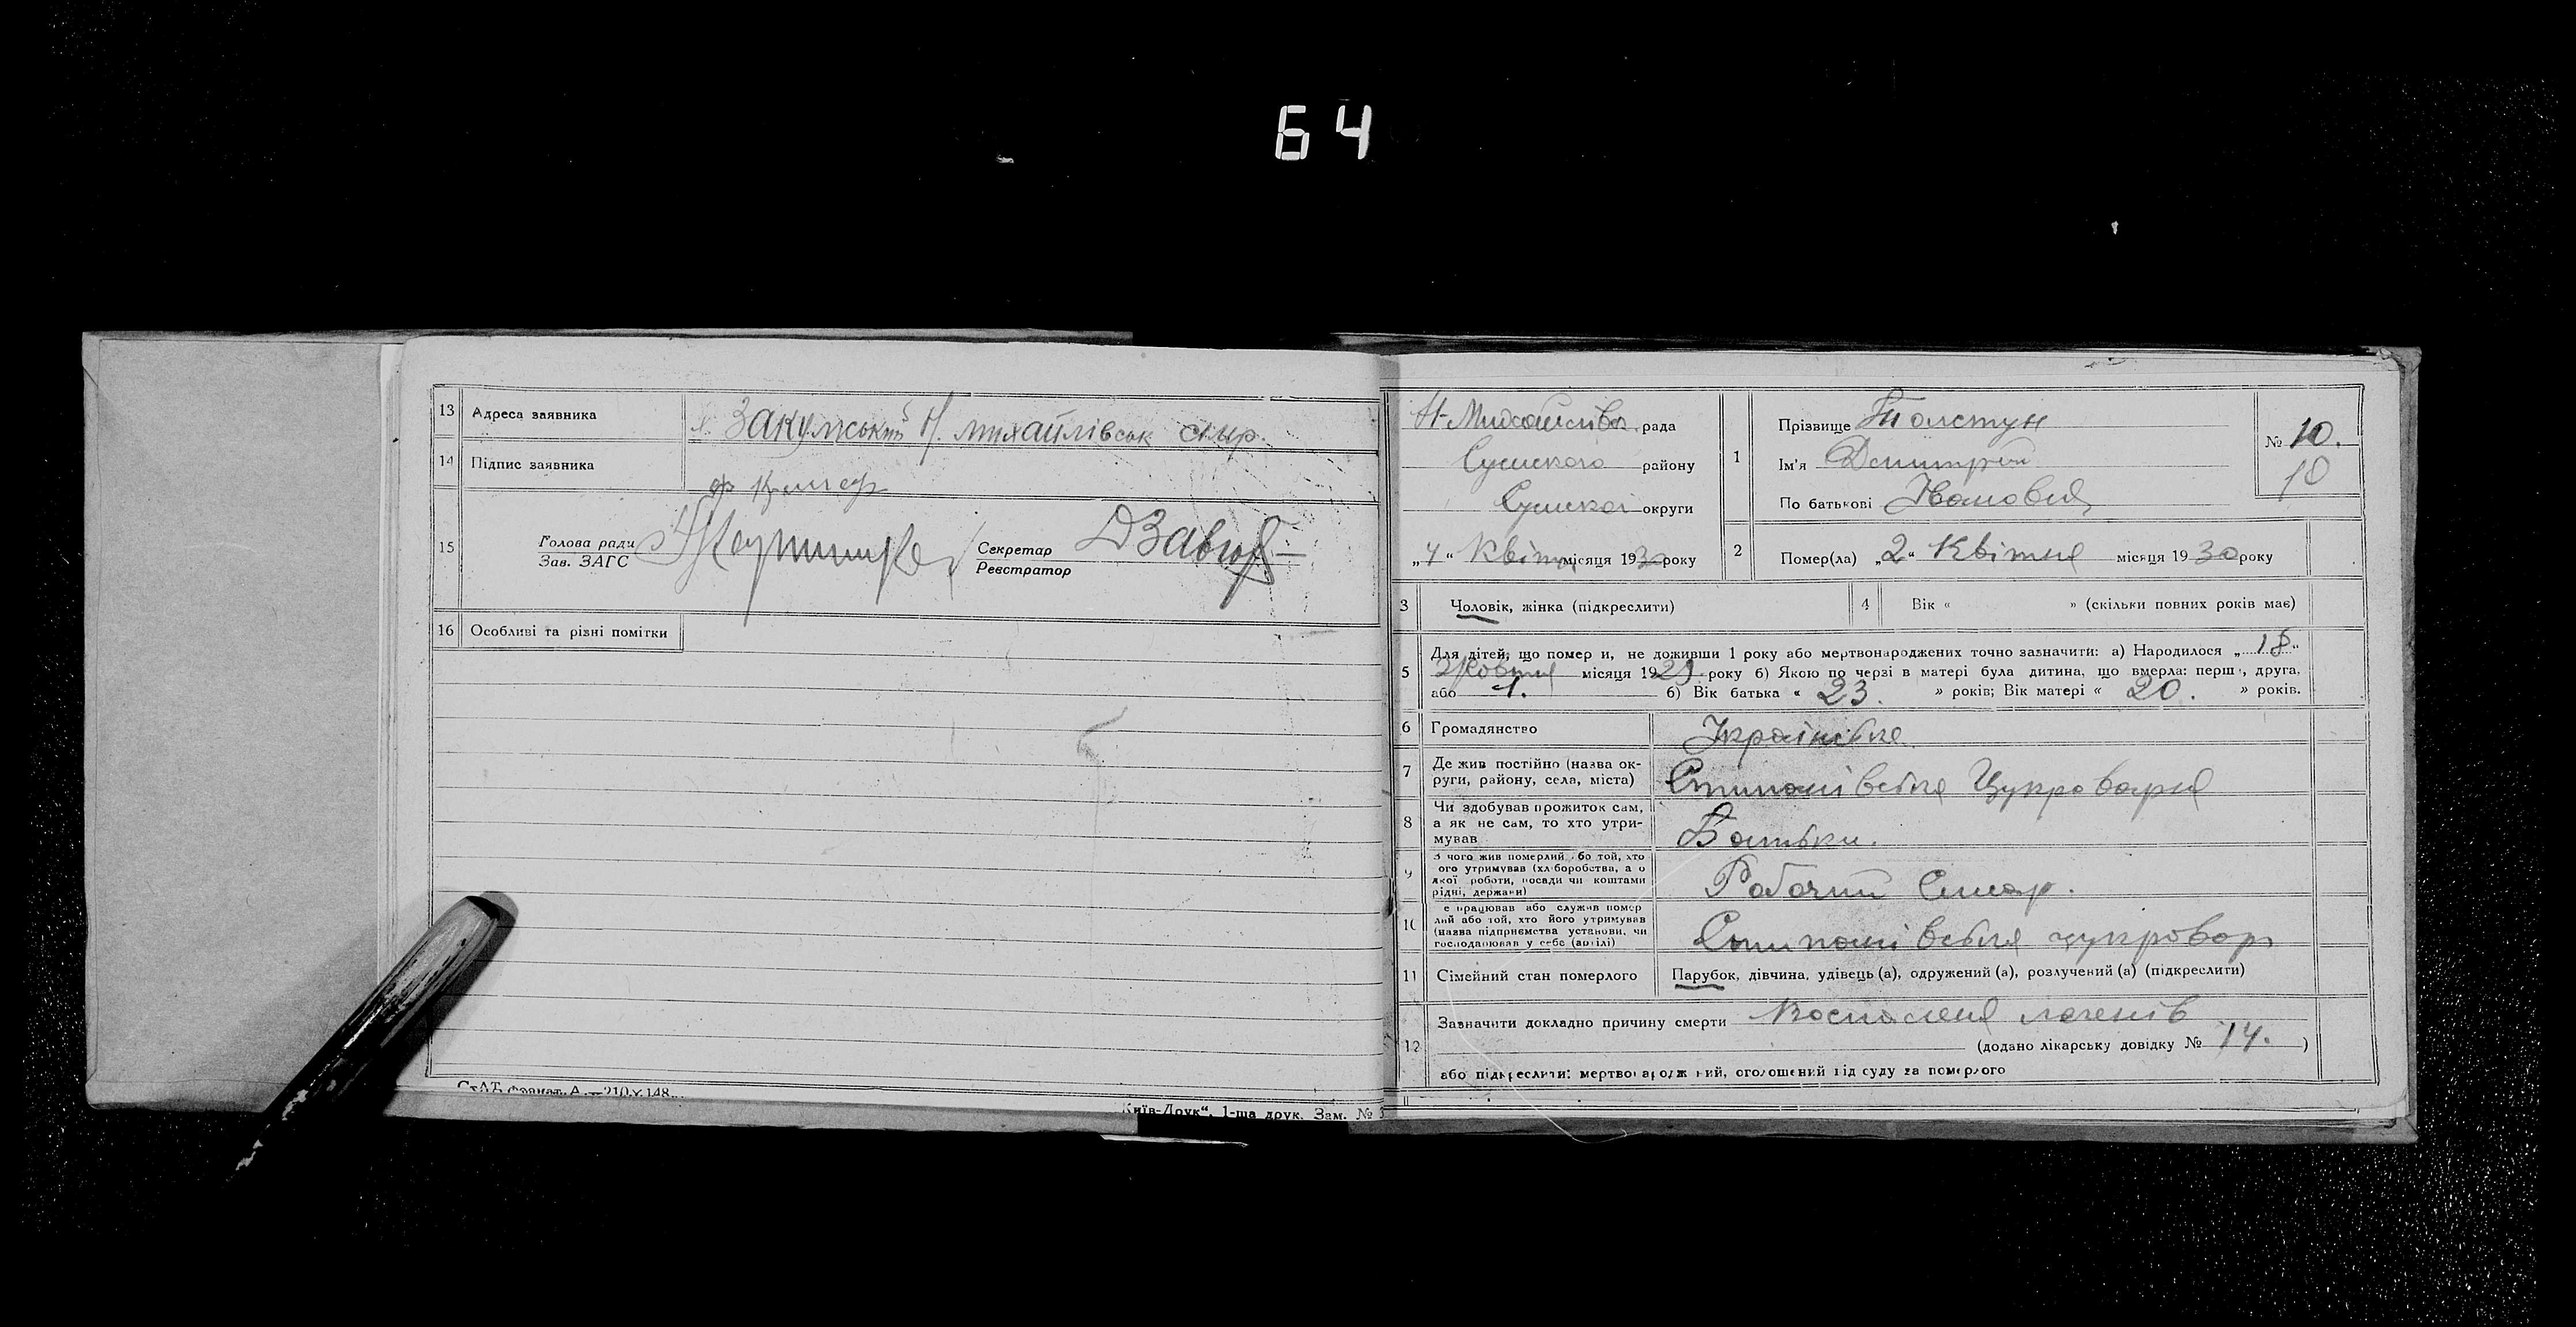 64
13 Адреса заявника х. Закумський Н. михайлівськ с/ир.
14 Підпис заявника
15 Голова ради
Зав. ЗАГС
Секретар
Реєстратор
16 Особливі та різні помітки
СтАТ. формат. А — 210 х 148
Київ-Друк“. 1-ша друк. Зам. №
Н-Михайлівка рада
Сумского району
Сумскої округи
„4“ Квітня місяця 1930 року
1 Прізвище Толстун
Ім'я Дмитрій
По батькові Іванович
№ 10.
10
2 Помер(ла) „2“ Квітня місяця 1930 року
3 Чоловік, жінка (підкреслити)
4 Вік « » (скільки повних років має)
5 Для дітей, що помер и, не доживши 1 року або мертвонароджених точно зазначити: а) Народилося „18“
Жовтня місяця 1929 року б) Якою по черзі в матері була дитина, що вмерла: перш , друга,
або 1. б) Вік батька « 23. » років; Вік матері « 20. » років.
6 Громадянство Українське
7 Де жив постійно (назва округи, району, села, міста) Степанівська Цукроварня
8 Чи здобував прожиток сам,
а як не сам, то хто утри-
мував Батьки.
9 З чого жив померлий або той, хто
ого утримував (хліборобства, а о
якої роботи, посади чи коштами
рідні, держави) Робочий Слюсар.
10 е працював або служив помер
лий або той, хто його утримував
(назва підприємства установи, чи
господарював у себе (артілі) Степанівська цукровар
11 Сімейний стан померлого Парубок, дівчина, удівець (а), одружений (а), розлучений (а) (підкреслити)
12 Зазначити докладно причину смерти Воспаленя легенів
(додано лікарську довідку № 14. )
або підкреслити: мертвонароджений, оголошений від суду за померлого